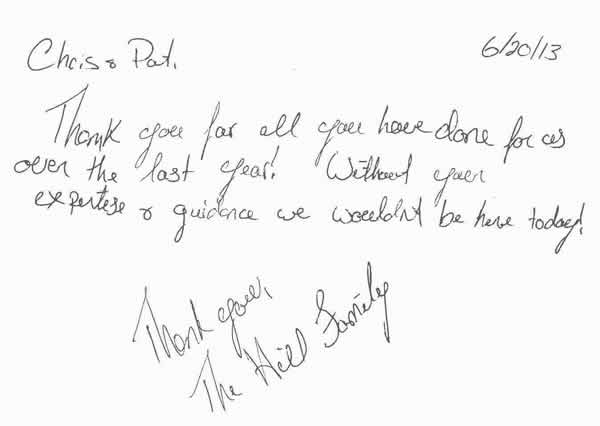 6/20/13
Chris & Pat,
Thank you for all you have done for us
over the last year! Without your
expertise & guidance we wouldn't be here today!
Thank you,
The Hill Family